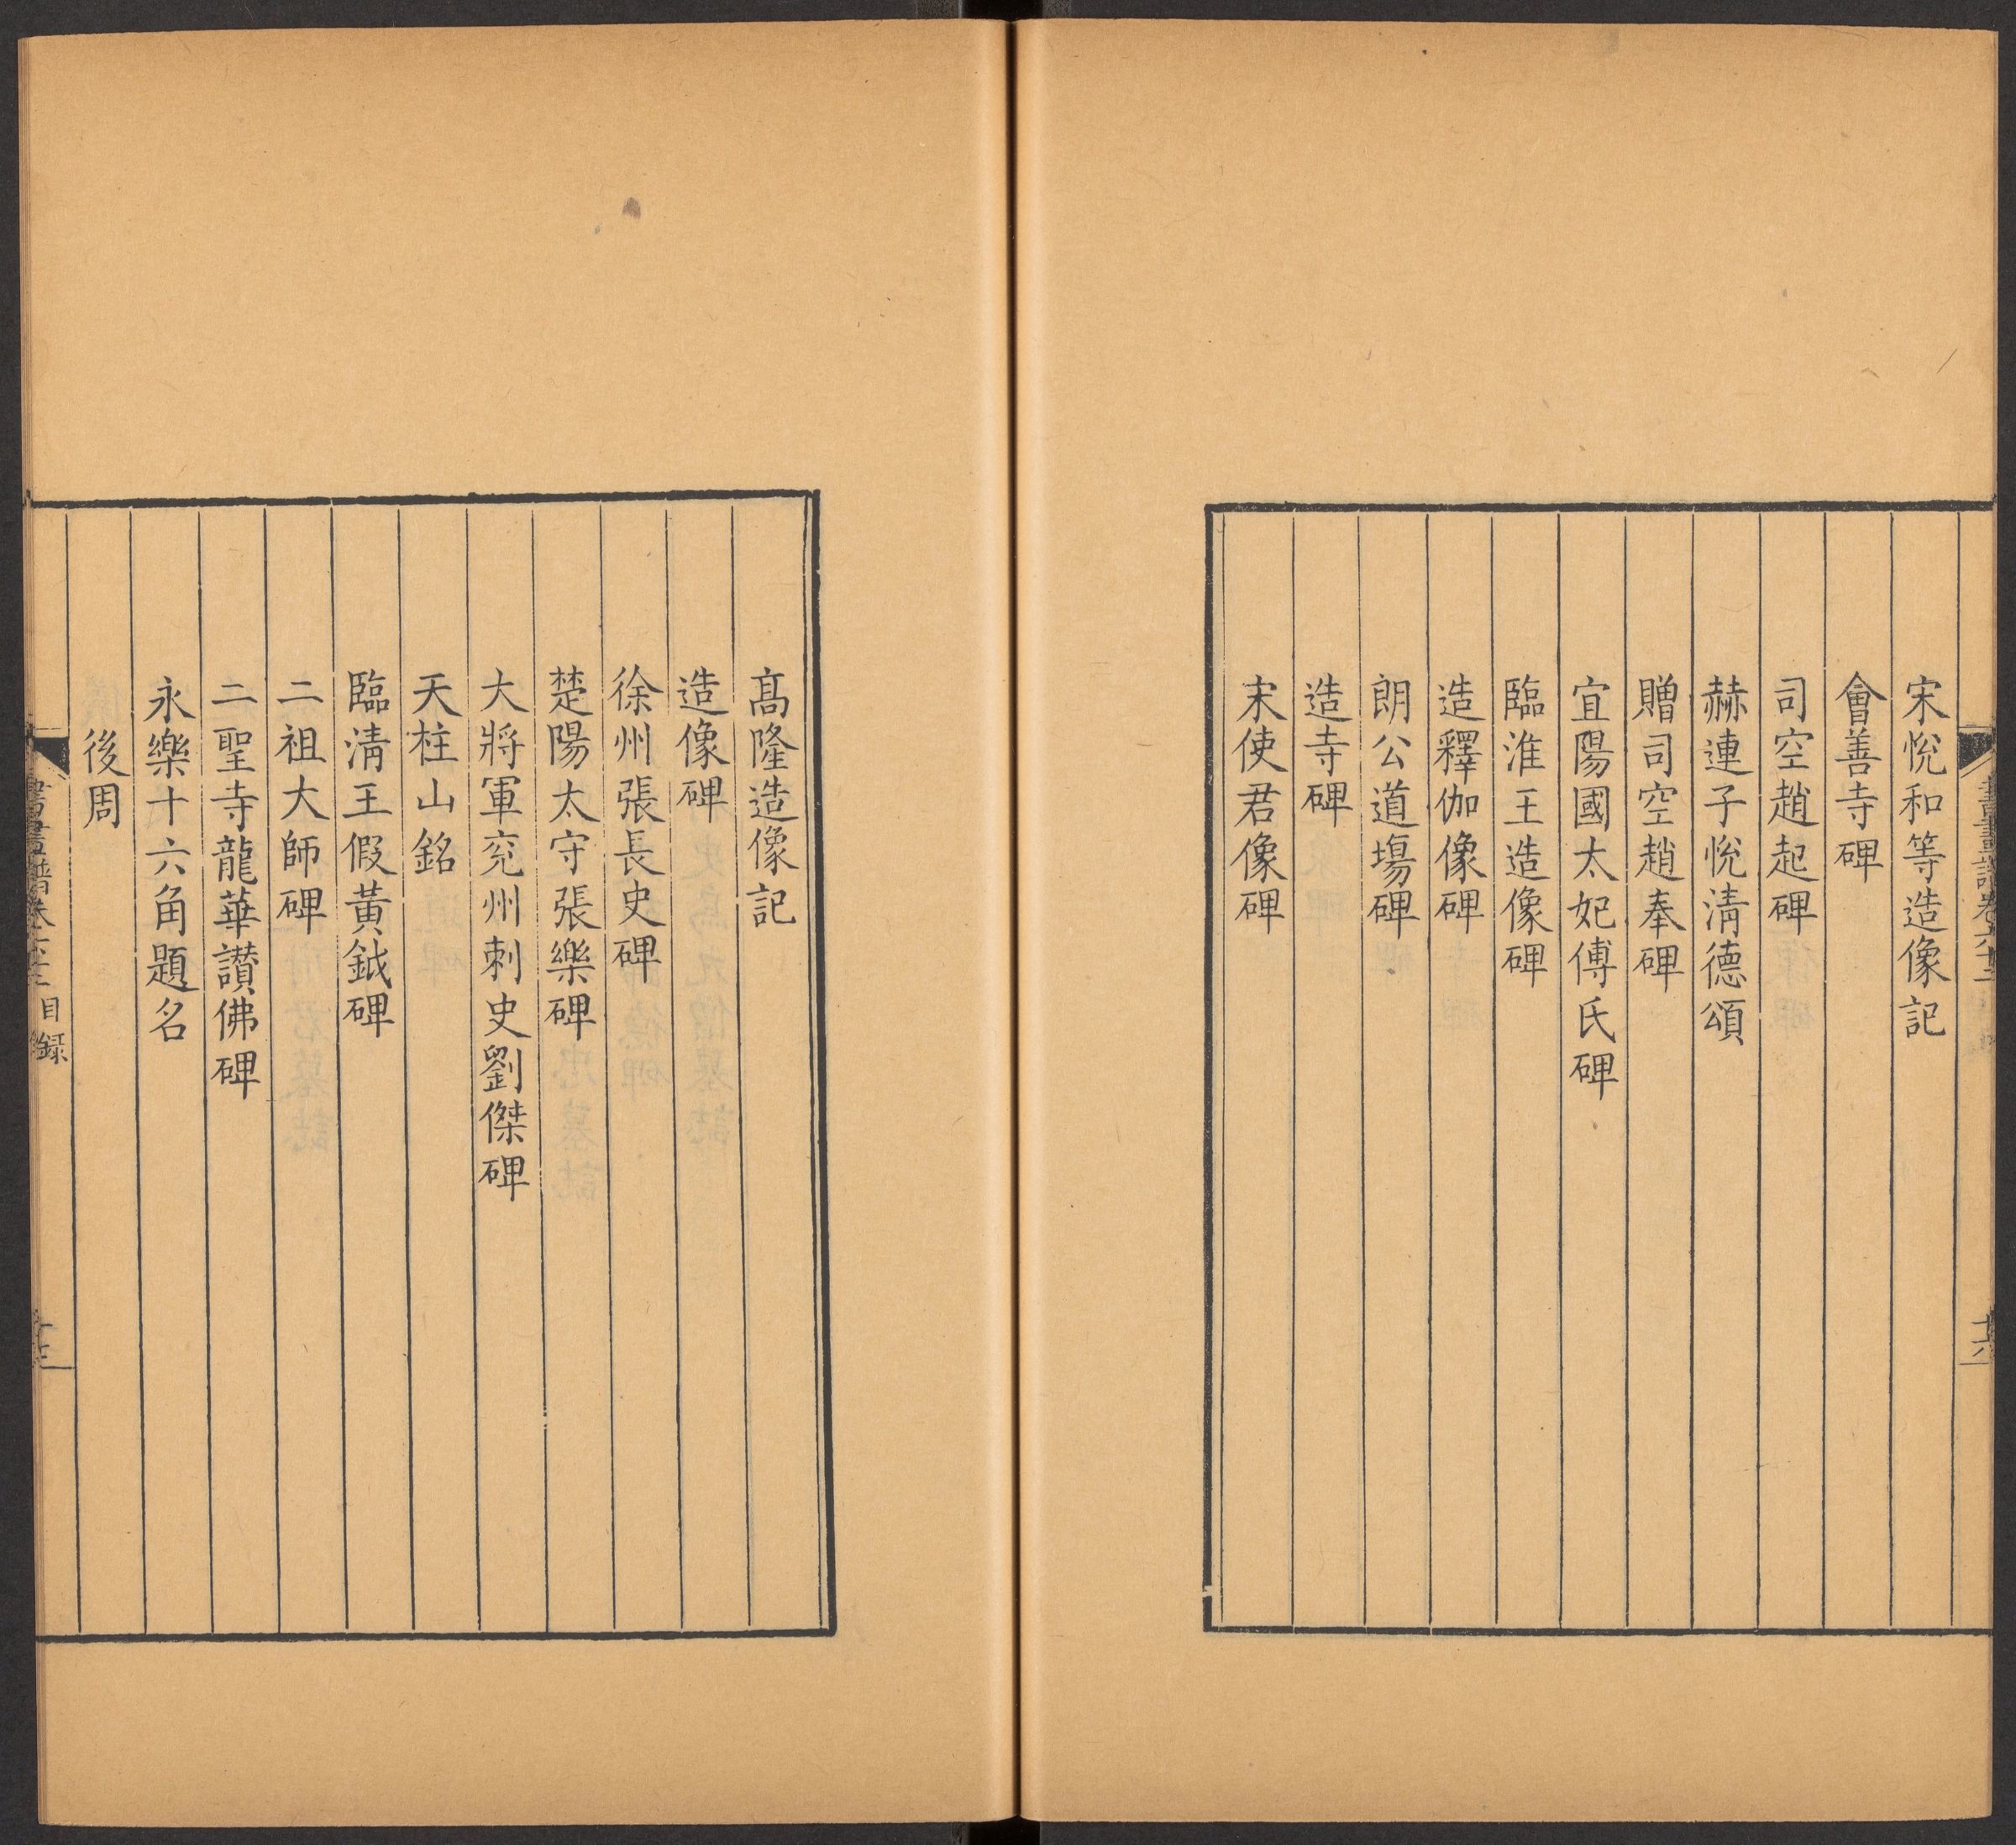 宋悅和等造像記
會善寺碑
司空趙起碑
赫連子悅清德頌
贈司空趙奉碑
宜陽國太妃傅氏碑
臨淮王造像碑
造釋伽像碑
朗公道場碑
造寺碑
宋使君像碑
髙隆造像記
造像碑
徐州張長史碑
楚陽太守張樂碑
大將軍兖州刺史劉傑碑
天柱山銘
臨清王假黃鉞碑
二祖大師碑
二聖寺龍華讃佛碑
永樂十六角題名
後周
目錄